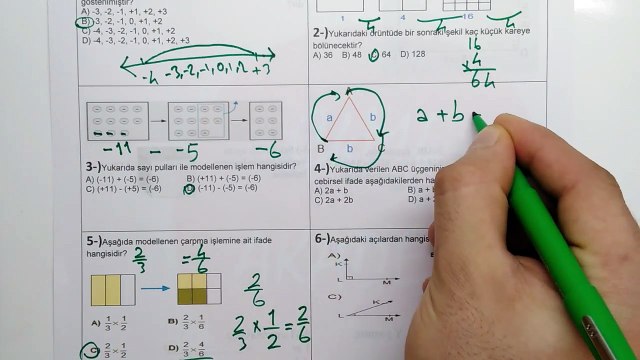 gösterilmiştir?
A) -3, -2, -1, +1, +2, +3
B) -3, -2, -1, 0, +1, +2
C) -4, -3, -2, -1, 0, +1, +2
D) -4, -3, -2, -1, +1, +2, +3
-4 -3, -2, -1, 0, 1, 2 +3
1 4 16
2-)Yukarıdaki örüntüde bir sonraki şekil kaç küçük kareye
bölünecektir?
A) 36 B) 48 C) 64 D) 128
16
x 4
64
-11 - -5 -6
3-)Yukarıda sayı pulları ile modellenen işlem hangisidir?
A) (-11) + (-5) = (-6) B) (+11) + (-5) = (-6)
C) (+11) - (+5) = (-6) D) (-11) - (-5) = (-6)
A
a b
B b C
a + b
4-)Yukarıda verilen ABC üçgenin
cebirsel ifade aşağıdakilerden ha
A) 2a + b B) a +
C) 2a + 2b D) a +
5-)Aşağıda modellenen çarpma işlemine ait ifade
hangisidir? 2/3 = 4/6
2/6
A) 1/3 x 1/2 B) 2/3 x 1/6
C) 2/3 x 1/2 D) 2/3 x 4/6
2/3 x 1/2 = 2/6
6-)Aşağıdaki açılardan hangis
A)
K
L M
C)
K
L M